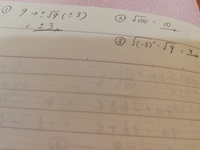 ① 9 → ±√9 (±3)
= ±3
② √100 = 10
③ √(-3)² = √9 = 3